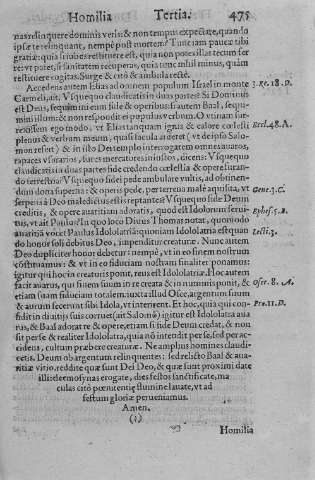 Homilia Tertia. 475
nas relinquere dominis velis: & non tempus expectare, quando
ipse te relinquant, nempè post mortem? Tunc iam pauca tibi
gratia: quia si habes restituere est, quia non potes illas tecum fer
re: vt puiet, si sanitatem recuperas, quia tunc nihil minus, quàm
restituere cogitas. Surge & citò & ambula rectè.
Accedens autem Elias ad omnem populum Israel in monte 3. Re. 18. D.
Carmeli, ait. Vsquequo claudicatis in duas partes? Si Dominus
est Deus, sequimini eum fide & operibus: si autem Baal, sequi-
mini illum: & non respondit ei populus verbum. O vtinam sur-
rexissem ego modo, vt Elias tanquam ignis & calore cœlesti Eccl. 48. A.
plenus & verbum meum, quasi facula arderet (vt de ipso Salo-
mon refert) & in isto Dei templo interrogatem omnes auaros,
rapaces vsurarios, fures mercatores iniustos, dicens: Vsquequo
claudicatis in duas partes fide credendo cœlestia & opere suran-
do terrestria? Vsquequo fidei pede ambulare vultis, ad obtinen-
dum dona superna: & operis pede, per terrena malè aquisita, vt
serpens à Deo maledictus estis reptantes? Vsquequo fide Deum Gene. 3. C.
creditis, & opere auaritiam adoratis, quod est Idolorum serui-
tus, vt ait Paulus? In quo loco Diuus Thomas notat, quomodo Ephes. 5. B.
auaritiã vocet Paulus Idololatriã: quoniam Idololatria est quan
do honor soli debitus Deo, impenditur creaturæ. Nunc autem Lecti. 3.
Deo dupliciter honor debetur: nempè, vt in eo finem nostrum
cõstituamus: & vt in eo fiduciam nostram finaliter ponamus:
igitur qui hoc in creaturis ponit, reus est Idololatriæ. Hoc autem
facit auarus, qui finem suum in re creata & in nummis ponit, & Oseæ. 8. A.
etiam suam fiduciam totalem, iuxta illud Oseæ, argentum suum
& aurum fecerunt sibi Idola, vt interirent. Et hoc, quia qui con-
fidit in diuitijs suis corruet (ait Salomõ) igitur est Idololatra aua Pro. 11. D.
rus, & Baal adorat re & opere, etiam si fide Deum credat, & non
sit per se & realiter Idololatra, quia nõ intendit per se, sed per ac-
cidens, cultum præbere creaturæ. Ne amplius homines claudi-
cetis. Deum ob argentum relinquentes: sed relicto Baal & aua-
ritiæ vitio, reddite quæ sunt Dei Deo, & quæ sunt proximi date
illi: eleemosynas erogate, dies festos sanctificate, ma
culas citò pœnitentiæ flumine lauate, vt ad
festum gloriæ perueniamus.
Amen.
(?)
Homilia